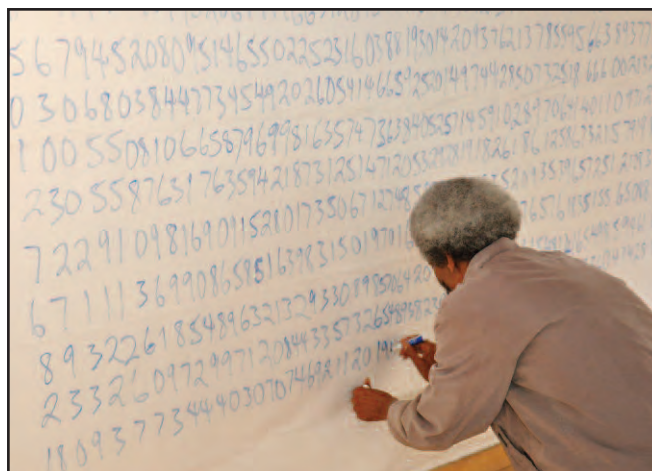 5679452080951465502252316038819301420937621378559566389377
0306803844773454920260541466592520149744285073251866600213
1005508106658796998163574736384052571459102897064140110971
2305587631763594218731251471205329281918261861258673215791
722910981690915280173506712748 5209353965725121083
671113699086585163983150197016 76576183515565088
89322618548963213293308985706420
233260972997120844335732654893823
1809377344403070746921120191